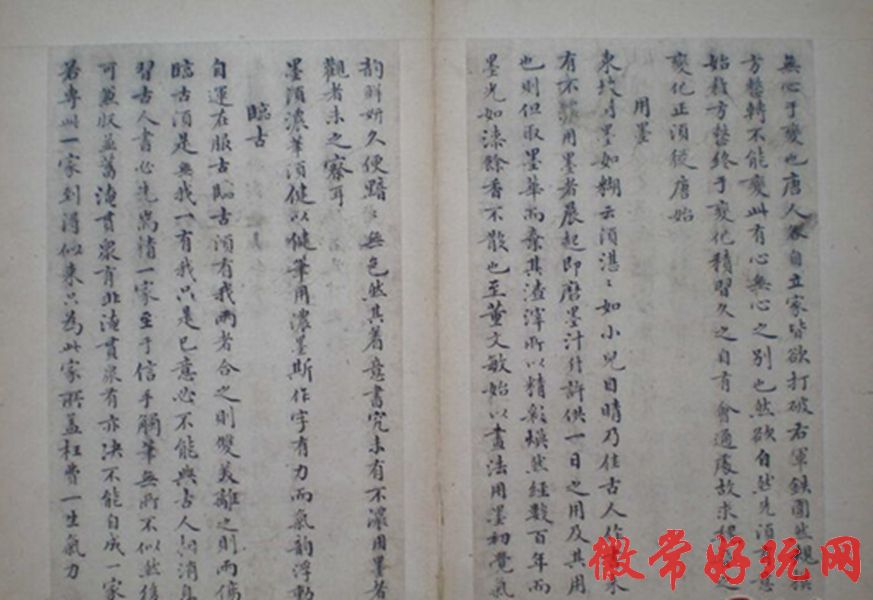 無心于變也唐人各自立家皆欲打破右軍鉄圍然規
方整轉不能變此有心無心之別也然欲自然先須
始於方整終于變化積習久之自有會通處故求之
變化正須從唐始
用墨
東坡用墨如糊云須湛〻如小兒目睛乃佳古人作書未
有不濃用墨者晨起即磨墨汁升許供一日之用及其用
也則但取墨華而棄其渣滓所以精彩煥然經數百年而
墨光如漆餘香不散也至董文敏始以畫法用墨初覺氣
韵鮮妍久便黯〻無色然其着意書究未有不濃用墨者
觀者未之察耳
墨須濃筆須健以健筆用濃墨斯作字有力而氣韵浮動
臨古
自運在服古臨古須有我兩者合之則雙美離之則兩傷
臨古須是無我一有我只是已意必不能與古人相消息
習古人書必先專精一家至于信手觸筆無所不似然後
可兼收並蓄淹貫衆有非淹貫衆有亦决不能自成一家
若專此一家到得似来只為此家所蓋枉費一生氣力
徽常好玩网